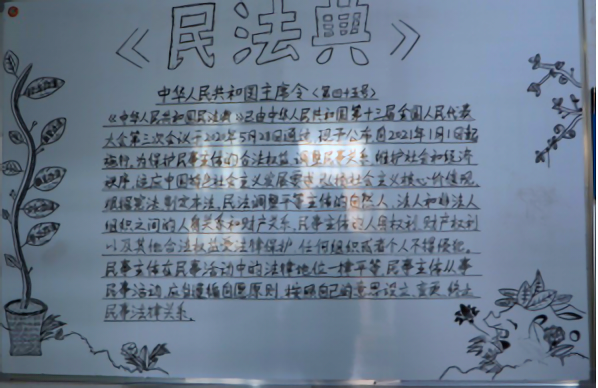 《民法典》
中华人民共和国主席令《第四十五号》
《中华人民共和国民法典》已由中华人民共和国第十三届全国人民代表
大会第三次会议于2020年5月28日通过,现予公布自2021年1月1日起
施行,为保护民事主体的合法权益,调整民事关系,维护社会和经济
秩序,适应中国特色社会主义发展要求,弘扬社会主义核心价值观,
根据宪法,制定本法,民法调整平等主体的自然人、法人和非法人
组织之间的人身关系和财产关系,民事主体的人身权利、财产权利
以及其他合法权益受法律保护,任何组织或者个人不得侵犯.
民事主体在民事活动中的法律地位一律平等,民事主体从事
民事活动,应当遵循自愿原则,按照自己的意思设立、变更、终止
民事法律关系.